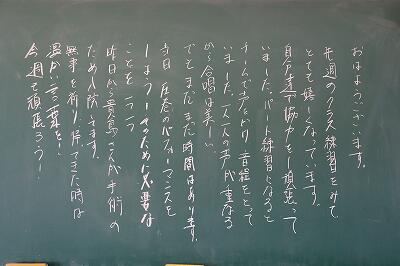 おはようございます。
先週のクラス練習をみて
とても嬉しくなっています。
自分達で協力をし頑張って
いました。パート練習になると
チームでアカペラ 音程をとって
いました。一人一人の声が重なる
から合唱は美しい。
でもまだまだ時間はあります。
当日 圧巻のパフォーマンスを
しましょう。そのために必要な
ことを一つ一つ
昨日から さんが手術の
ため入院してます。
無事を祈り 帰ってきた時は
温かい言葉を!
今週も頑張ろう!